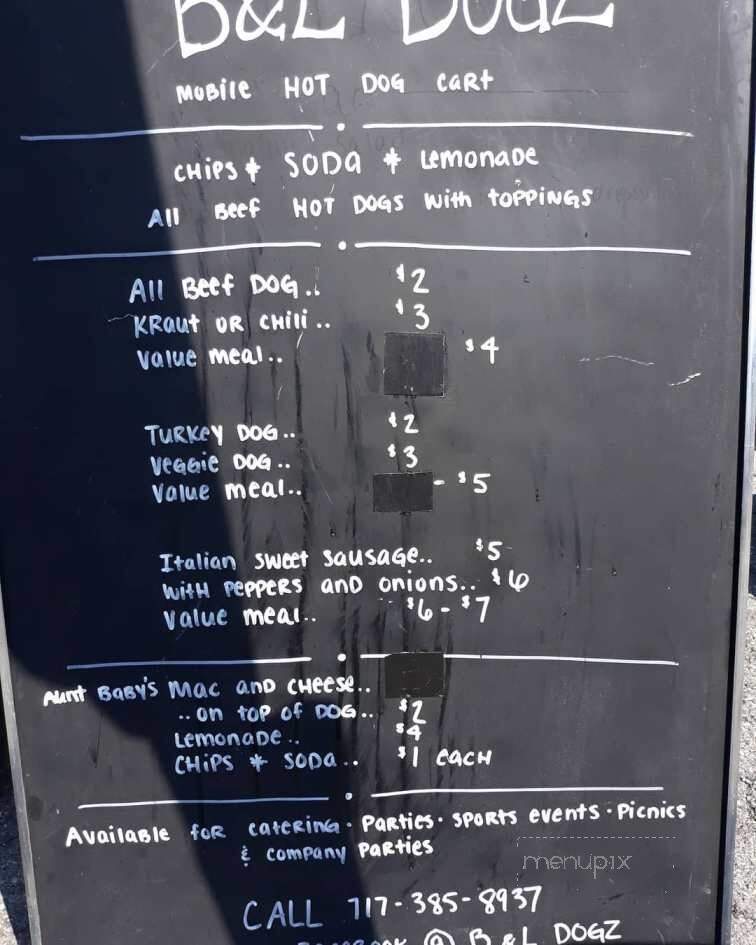 B&L DOGZ
MOBILE HOT DOG CART
CHIPS * SODA * LEMONADE
All Beef HOT DOGS WITH TOPPINGS
All Beef DOG.. $2
KRAUT OR CHILI.. $3
Value meal.. $4
TURKEY DOG.. $2
VEGGIE DOG.. $3
Value meal.. - $5
Italian sweet sausage.. $5
WITH PEPPERS AND ONIONS.. $6
Value meal.. $6 - $7
Aunt BABY'S MAC AND CHEESE..
..ON TOP OF DOG.. $2
LEMONADE.. $4
CHIPS * SODA.. $1 EACH
AVAILABLE FOR CATERING · PARTIES · SPORTS EVENTS · PICNICS
& COMPANY PARTIES
menupix
CALL 717-385-8937
FACEBOOK @ B&L DOGZ